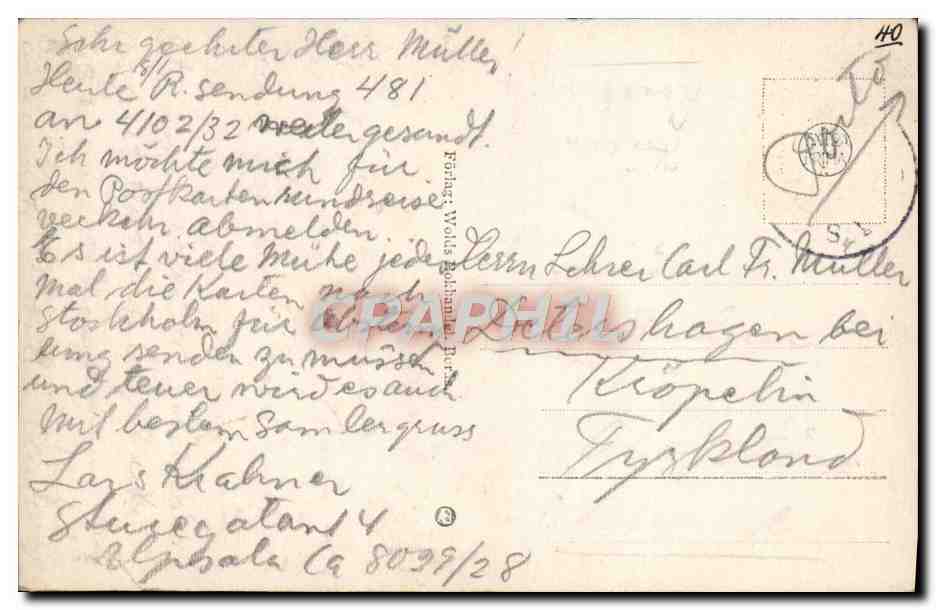 40
Sehr geehrter Herr Müller!
Heute R. sendung 481
an 4102/32 weitergesandt.
Ich möchte mich für
den Postkartenrundreise
verkehr abmelden.
Es ist viele Mühe jedes
Mal die Karten nach
Stockholm für
senden zu müssen
und teuer wird es auch.
Mit bestem Sammlergruss
Lars
Sturegatan 4
Upsala Ca 8099/28
Förlag: Wolds Bokhandel,
Herrn Lehrer Carl Fr. Müller
bei
Kröpelin
Tyskland
CPARAMA